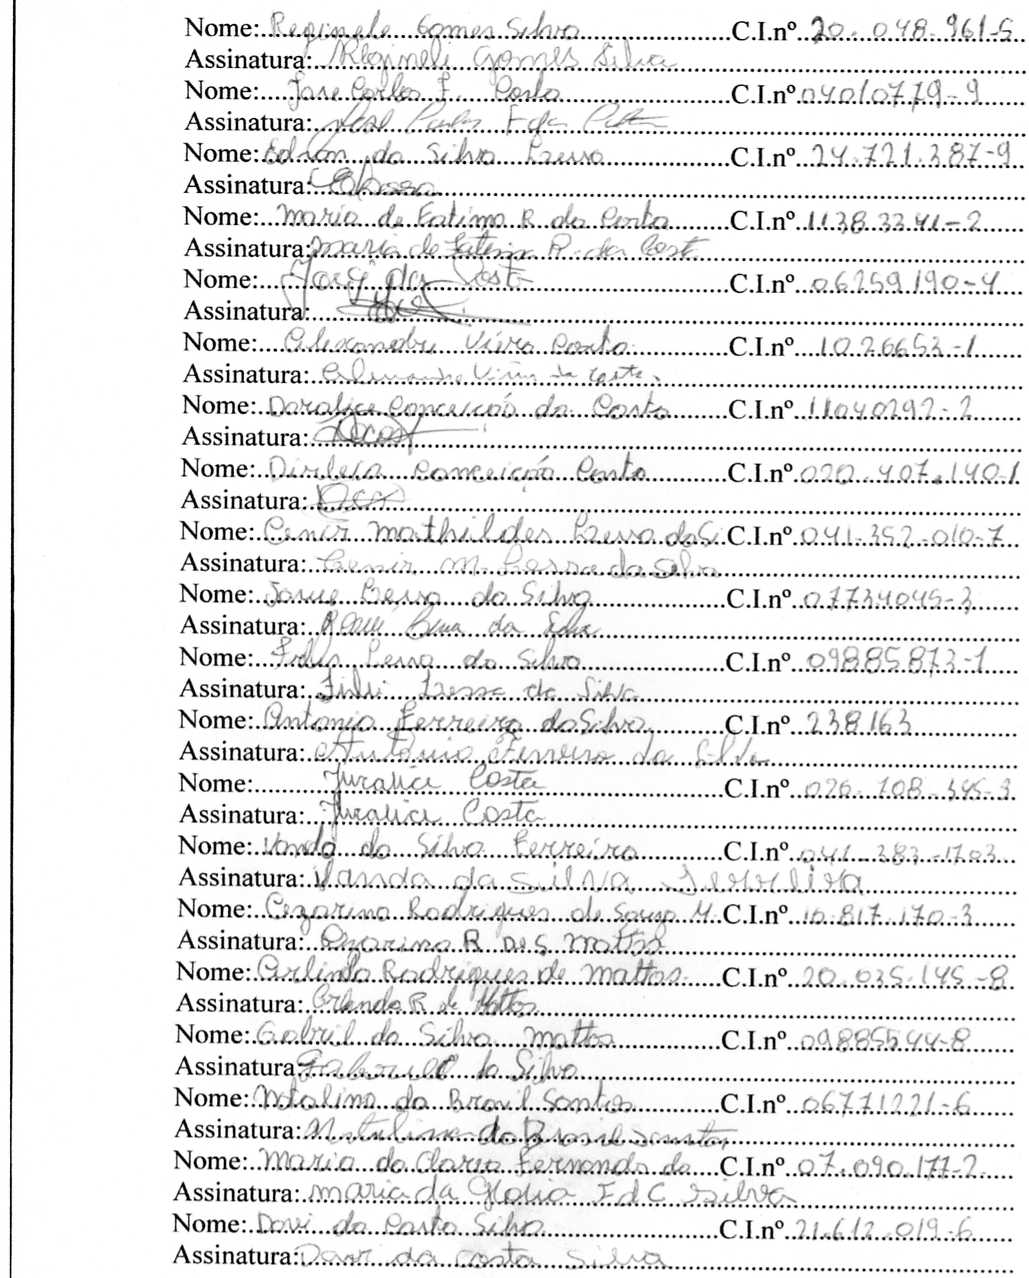 Nome: Regineli Gomes Silva C.I.nº 20.048.961-5
Assinatura: Regineli Gomes Silva
Nome: Jose Carlos F. Costa C.I.nº 04010779-9
Assinatura: Jose
Nome: Edson da Silva Lessa C.I.nº 24.721.387-9
Assinatura:
Nome: Maria de Fatima R da Costa C.I.nº 11383341-2
Assinatura: Maria de Fatima R. da Cost
Nome: José da Costa C.I.nº 06259190-4
Assinatura:
Nome: Alexandre Viera Costa C.I.nº 1026653-1
Assinatura: Alexandre Vieira da Costa
Nome: Doralice Conceição da Costa C.I.nº 11040292-2
Assinatura: DCost
Nome: Dirleia Conceição Costa C.I.nº 020.407.140-1
Assinatura:
Nome: Cenir Mathildes Lessa da Si C.I.nº 041.352-010-7
Assinatura: Cenir M. Lessa da Silva
Nome: Lessa da Silva C.I.nº 07734045-3
Assinatura: da Silva
Nome: Lessa da Silva C.I.nº 09885873-1
Assinatura: Lessa da Silva
Nome: Antonio Ferreira da Silva C.I.nº 238163
Assinatura: Antonio Ferreira da Silva
Nome: Juralice Costa C.I.nº 026.108.545-3
Assinatura: Juralice Costa
Nome: Vanda da Silva Ferreira C.I.nº 041.383-1703
Assinatura: Vanda da Silva Ferreira
Nome: Cezarina Rodrigues de Souza M. C.I.nº 10.817.170-3
Assinatura: Cezarina R de S Mattos
Nome: Arlindo Rodrigues de Mattos C.I.nº 20.035.145-8
Assinatura: Arlindo R de Mattos
Nome: Gabriel da Silva Mattos C.I.nº 09885544-8
Assinatura: Gabriel da Silva
Nome: Natalina do Brasil Santos C.I.nº 06771221-6
Assinatura: Natalina do Brasil Santos
Nome: Maria da Gloria Fernanda da C.I.nº 07.090.177-2
Assinatura: Maria da Gloria F d C Silva
Nome: Davi da Costa Silva C.I.nº 21.612.019-6
Assinatura: Davi da Costa Silva